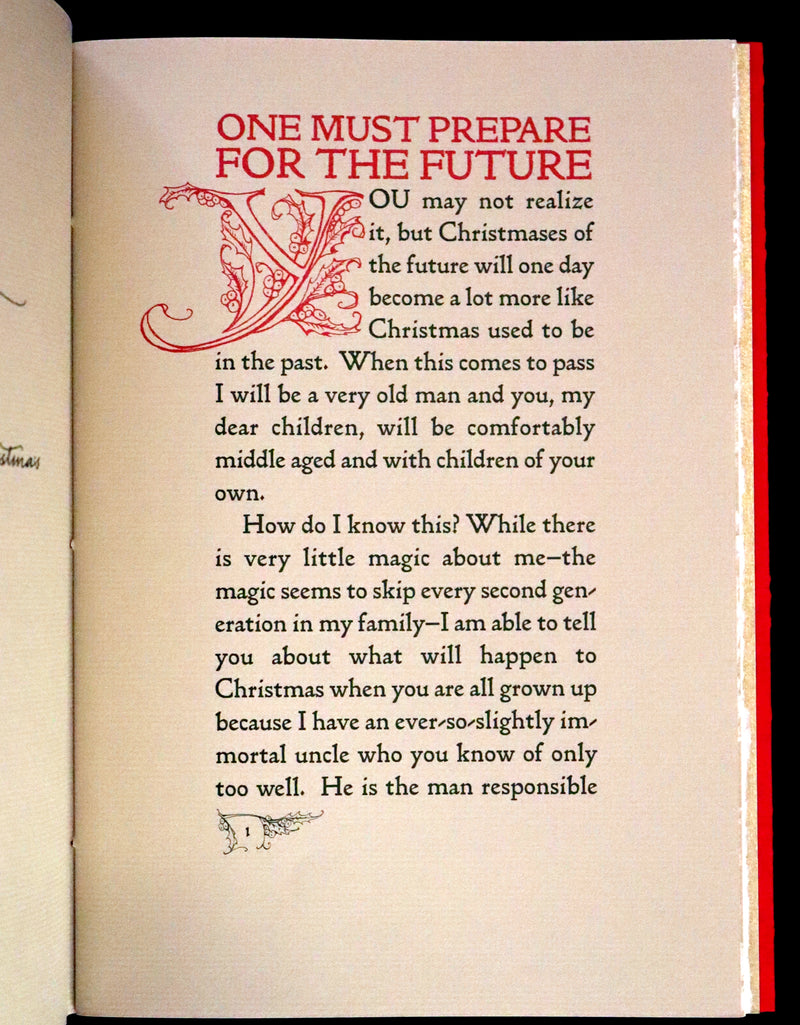 ONE MUST PREPARE
FOR THE FUTURE
YOU may not realize
it, but Christmases of
the future will one day
become a lot more like
Christmas used to be
in the past. When this comes to pass
I will be a very old man and you, my
dear children, will be comfortably
middle aged and with children of your
own.
How do I know this? While there
is very little magic about me—the
magic seems to skip every second gen-
eration in my family—I am able to tell
you about what will happen to
Christmas when you are all grown up
because I have an ever-so-slightly im-
mortal uncle who you know of only
too well. He is the man responsible
1